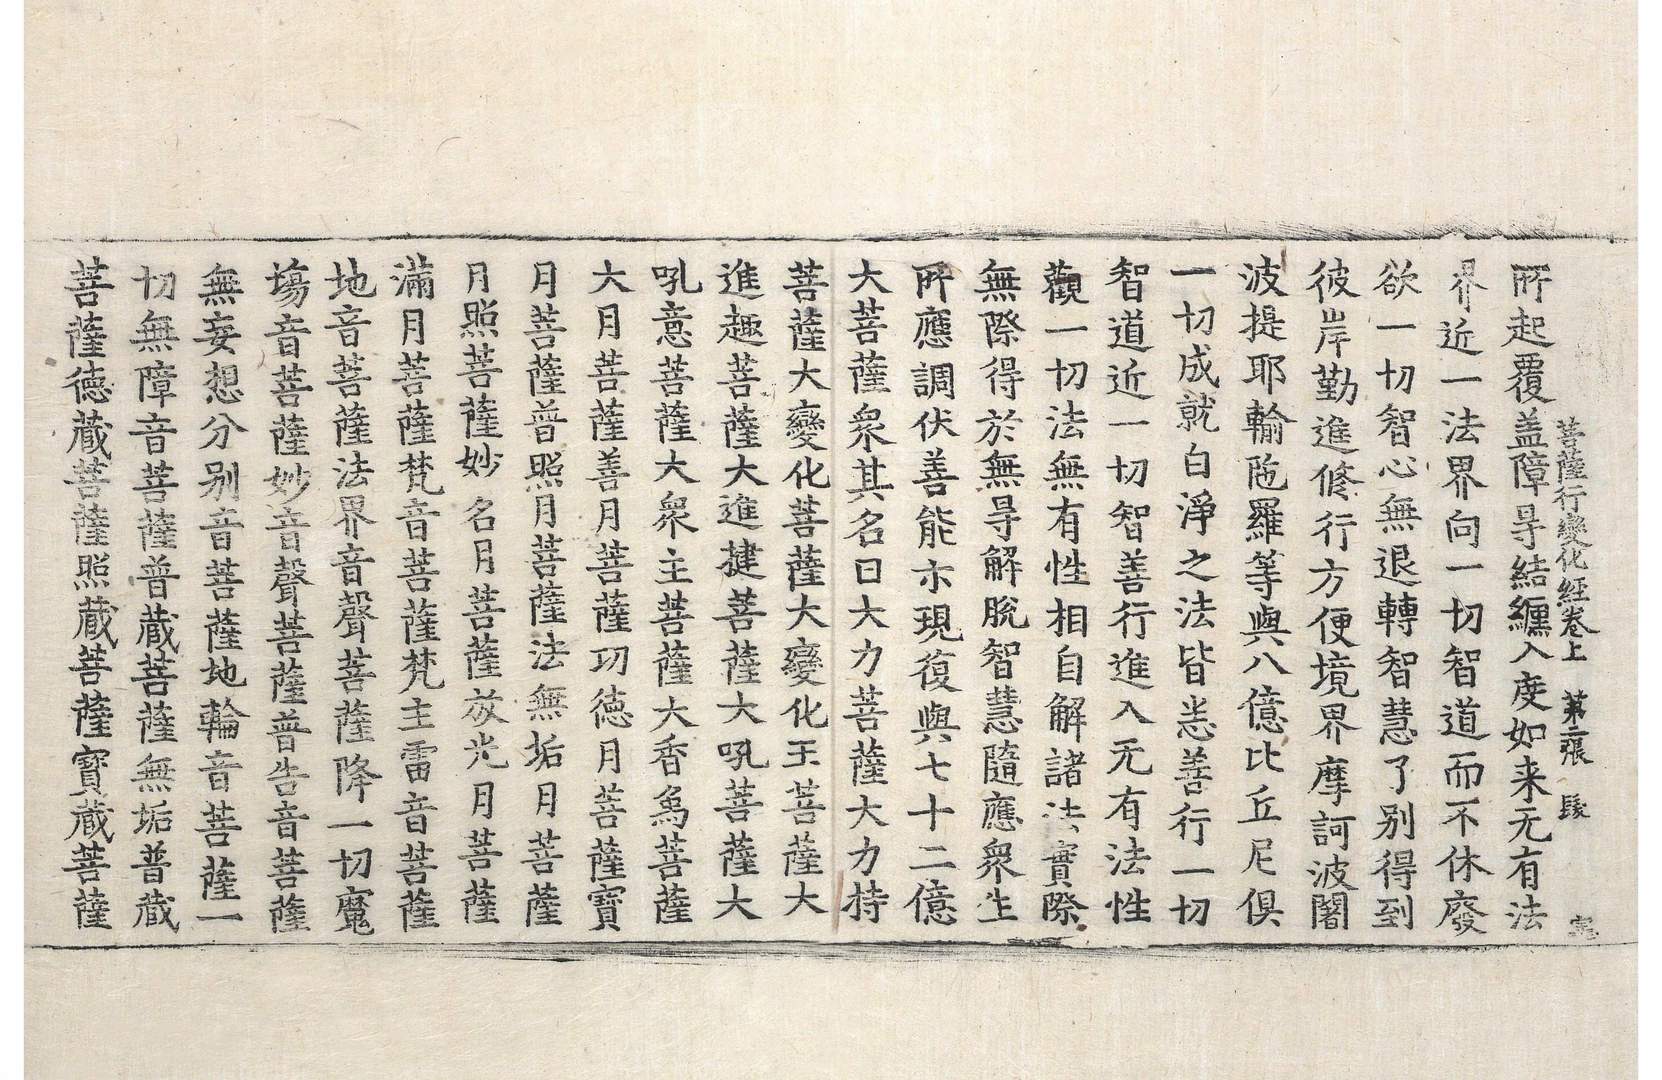 菩薩行變化經卷上 第二張 髮
所起覆盖障㝵結纏入度如来无有法
界近一法界向一切智道而不休廢
欲一切智心無退轉智慧了别得到
彼岸勤進修行方便境界摩訶波闍
波提耶輸陁羅等與八億比丘尼俱
一切成就白淨之法皆悉善行一切
智道近一切智善行進入无有法性
觀一切法無有性相自解諸法實際
無際得於無㝵解脫智慧隨應衆生
所應調伏善能尒現復與七十二億
大菩薩衆其名曰大力菩薩大力持
菩薩大變化菩薩大變化王菩薩大
進趣菩薩大進揵菩薩大吼菩薩大
吼意菩薩大衆主菩薩大香象菩薩
大月菩薩善月菩薩功徳月菩薩寶
月菩薩普照月菩薩法無垢月菩薩
月照菩薩妙名月菩薩放光月菩薩
滿月菩薩梵音菩薩梵主雷音菩薩
地音菩薩法界音聲菩薩降一切魔
塲音菩薩妙音聲菩薩普告音菩薩
無妄想分别音菩薩地輪音菩薩一
切無障音菩薩普藏菩薩無垢普藏
菩薩徳藏菩薩照藏菩薩寶藏菩薩